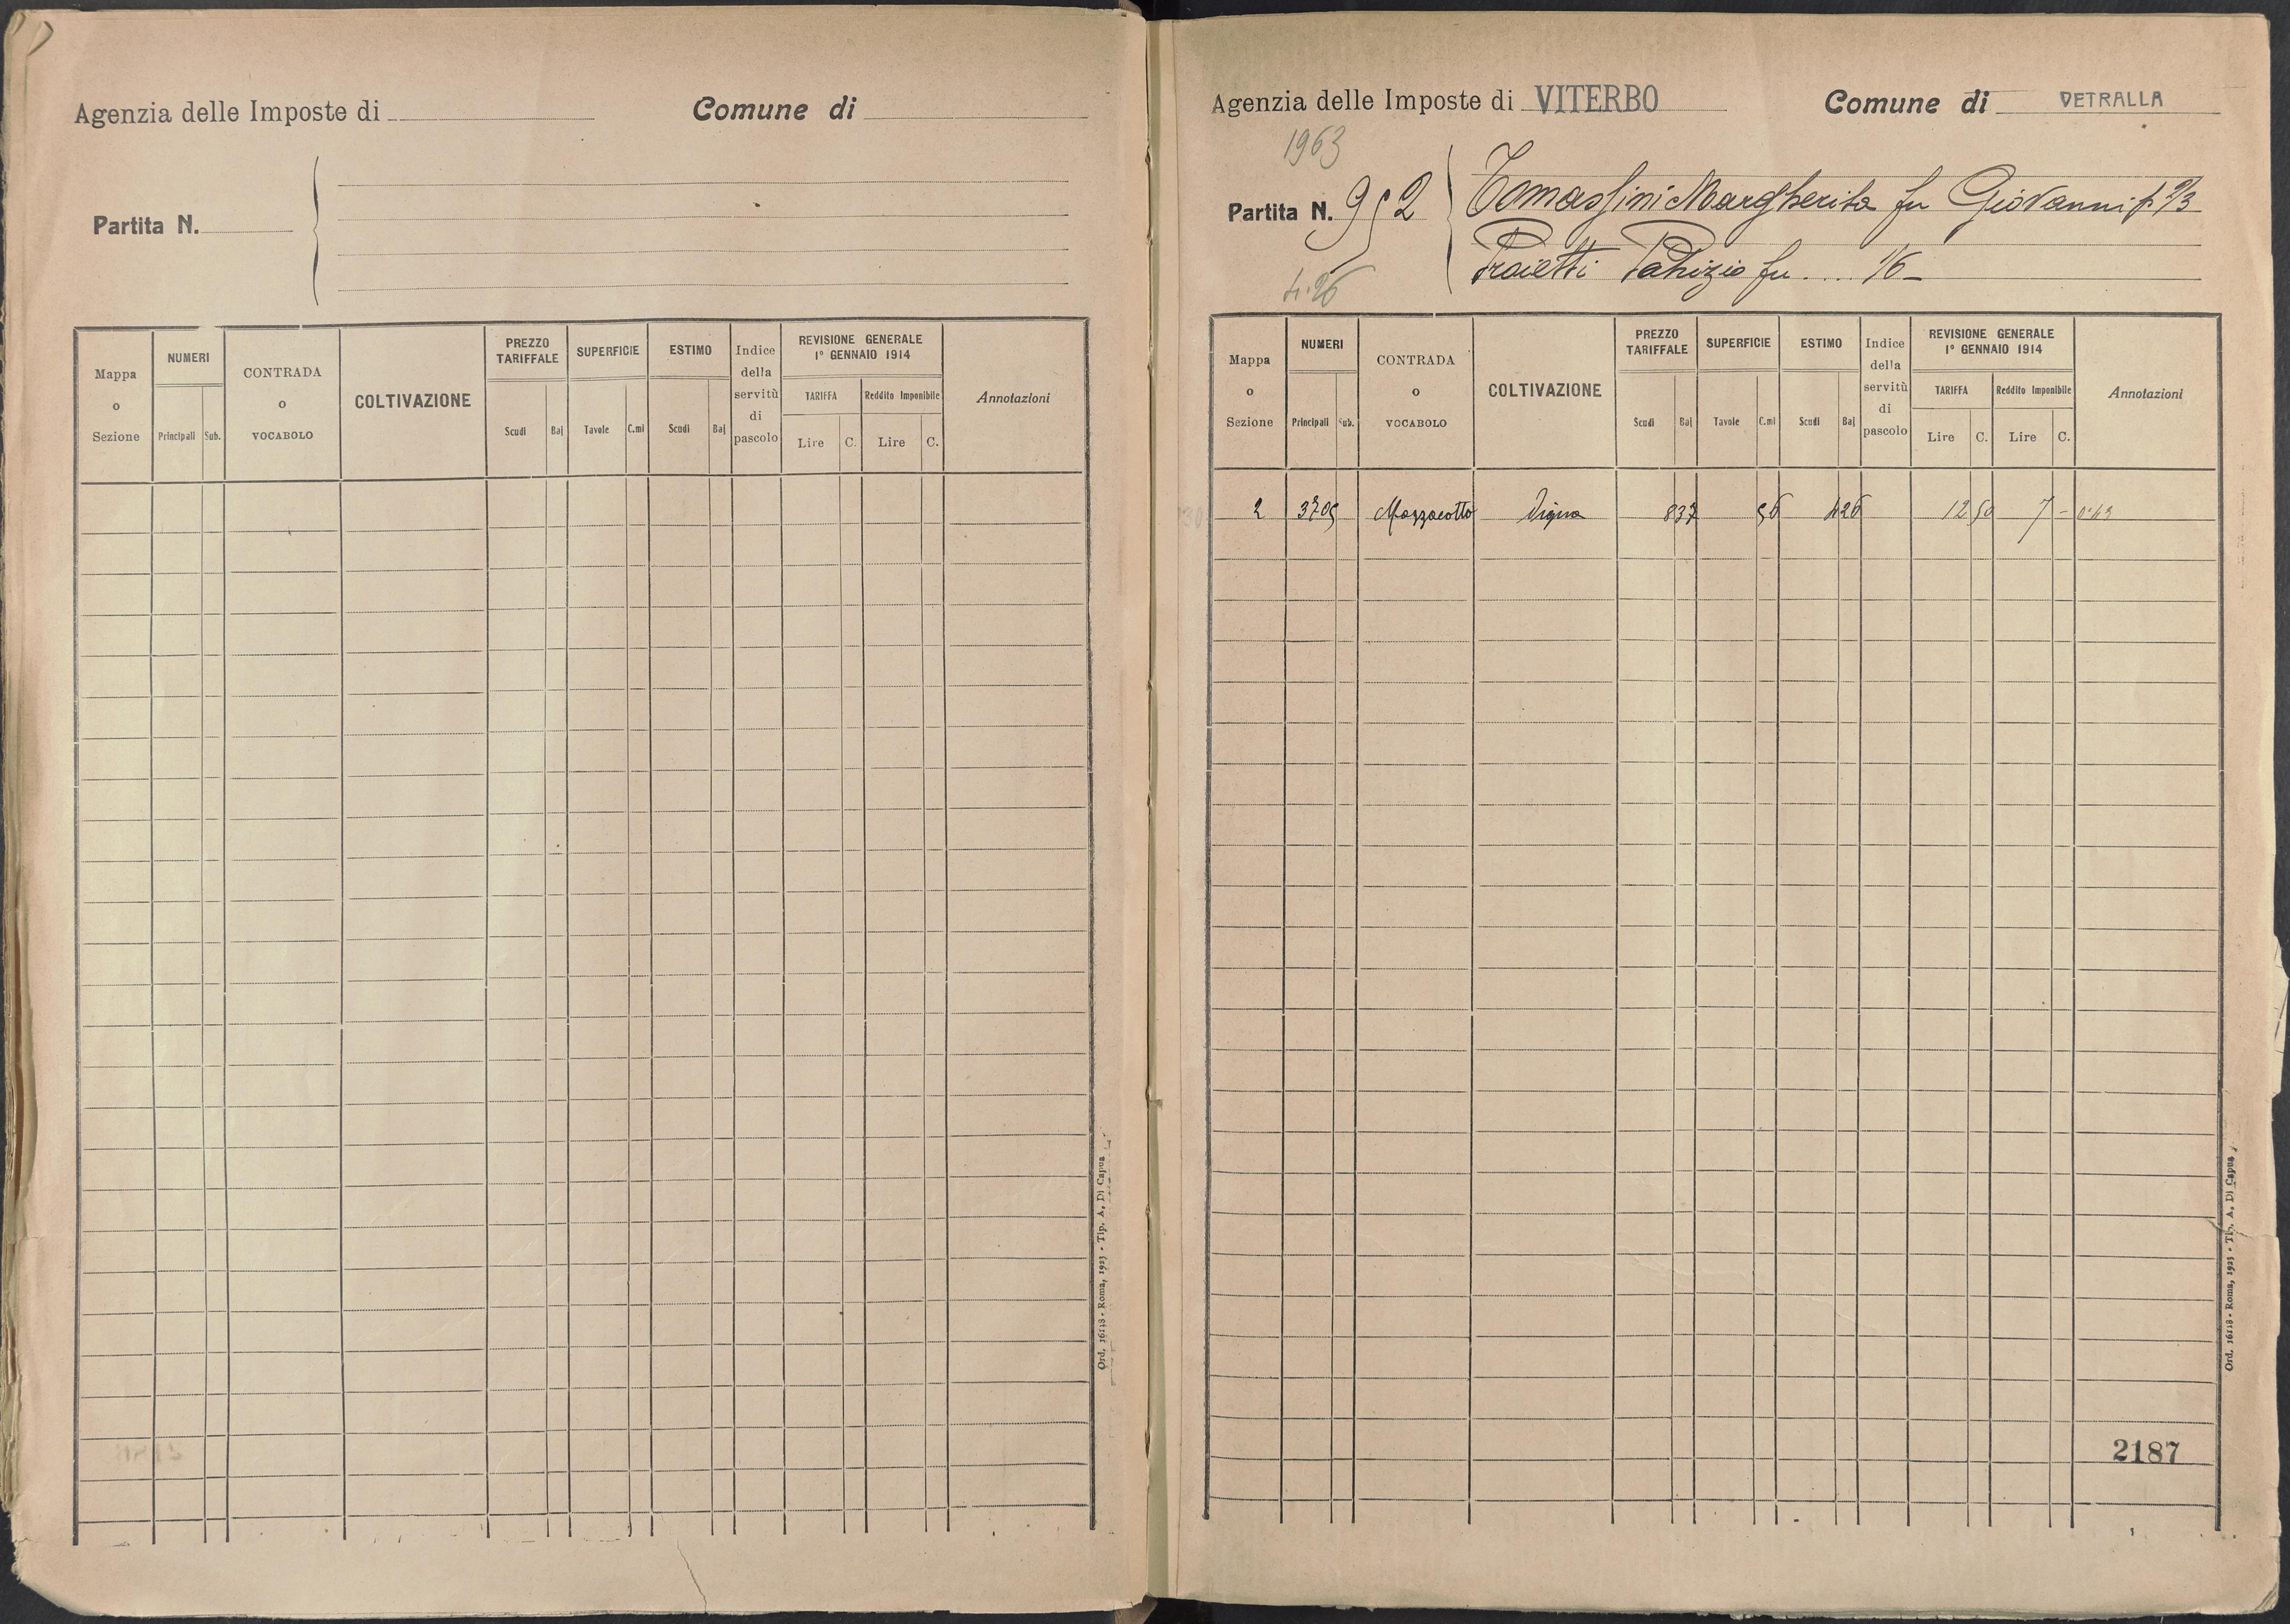 Agenzia delle Imposte di
Comune di
Partita N.
Mappa o Sezione
NUMERI
Principali Sub.
CONTRADA o VOCABOLO
COLTIVAZIONE
PREZZO TARIFFALE
Scudi Baj
SUPERFICIE
Tavole C.mi
ESTIMO
Scudi Baj
Indice della servitù di pascolo
REVISIONE GENERALE 1° GENNAIO 1914
TARIFFA
Lire C.
Reddito Imponibile
Lire C.
Annotazioni
Ord. 16118 - Roma, 1923 - Tip. A. Di Capua
Agenzia delle Imposte di VITERBO
Comune di VETRALLA
1963
Partita N. 952
4.26
Tomassini Margherita fu Giovanni p. 2/3
Proietti Patrizio fu .... 1/6
Mappa o Sezione
NUMERI
Principali Sub.
CONTRADA o VOCABOLO
COLTIVAZIONE
PREZZO TARIFFALE
Scudi Baj
SUPERFICIE
Tavole C.mi
ESTIMO
Scudi Baj
Indice della servitù di pascolo
REVISIONE GENERALE 1° GENNAIO 1914
TARIFFA
Lire C.
Reddito Imponibile
Lire C.
Annotazioni
2 3705 Mazzacotto Vigna 837 56 426 12 50 7 -
2187
Ord. 16118 - Roma, 1923 - Tip. A. Di Capua